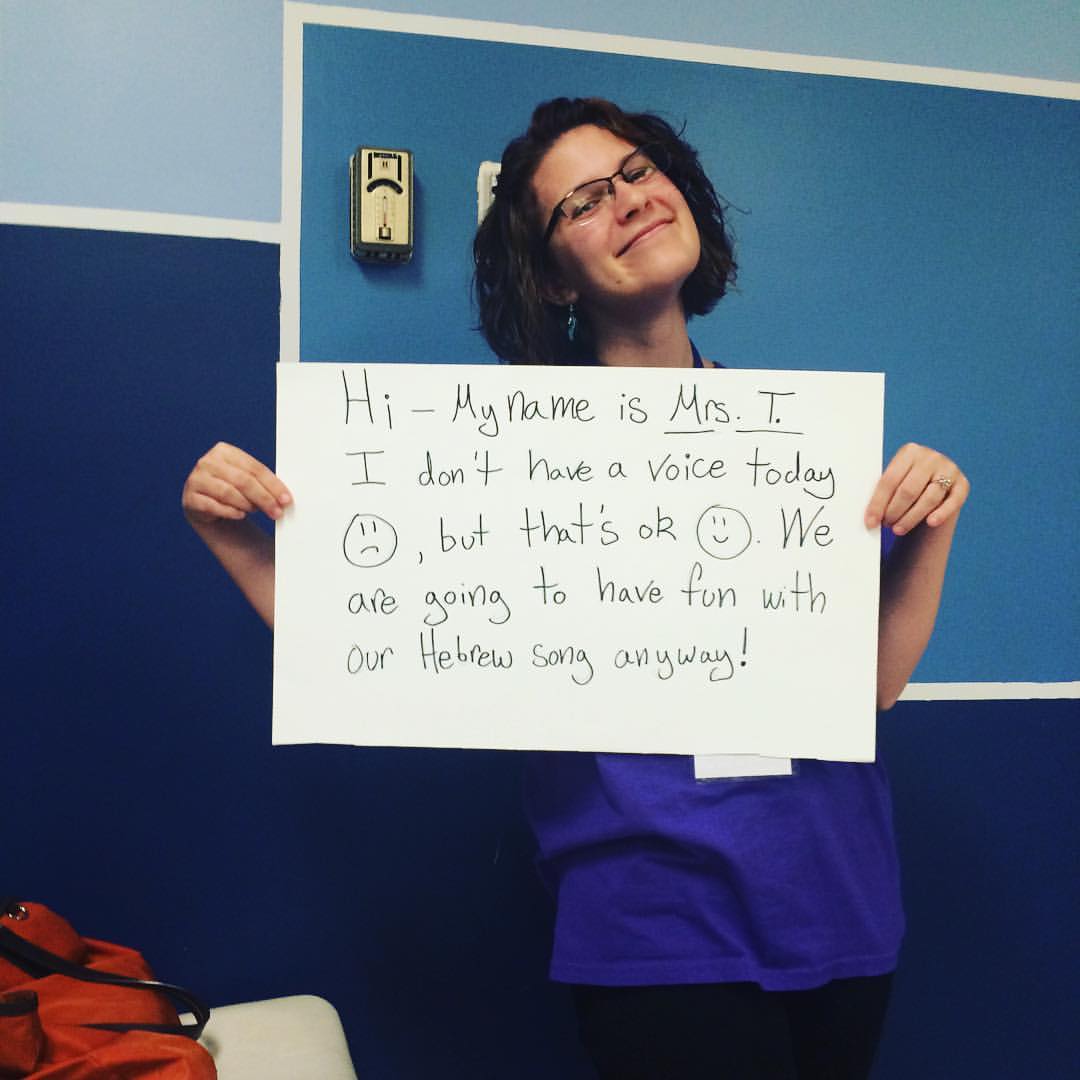 Hi – My name is Mrs. T.
I don't have a voice today
☹, but that's ok ☺. We
are going to have fun with
our Hebrew song anyway!